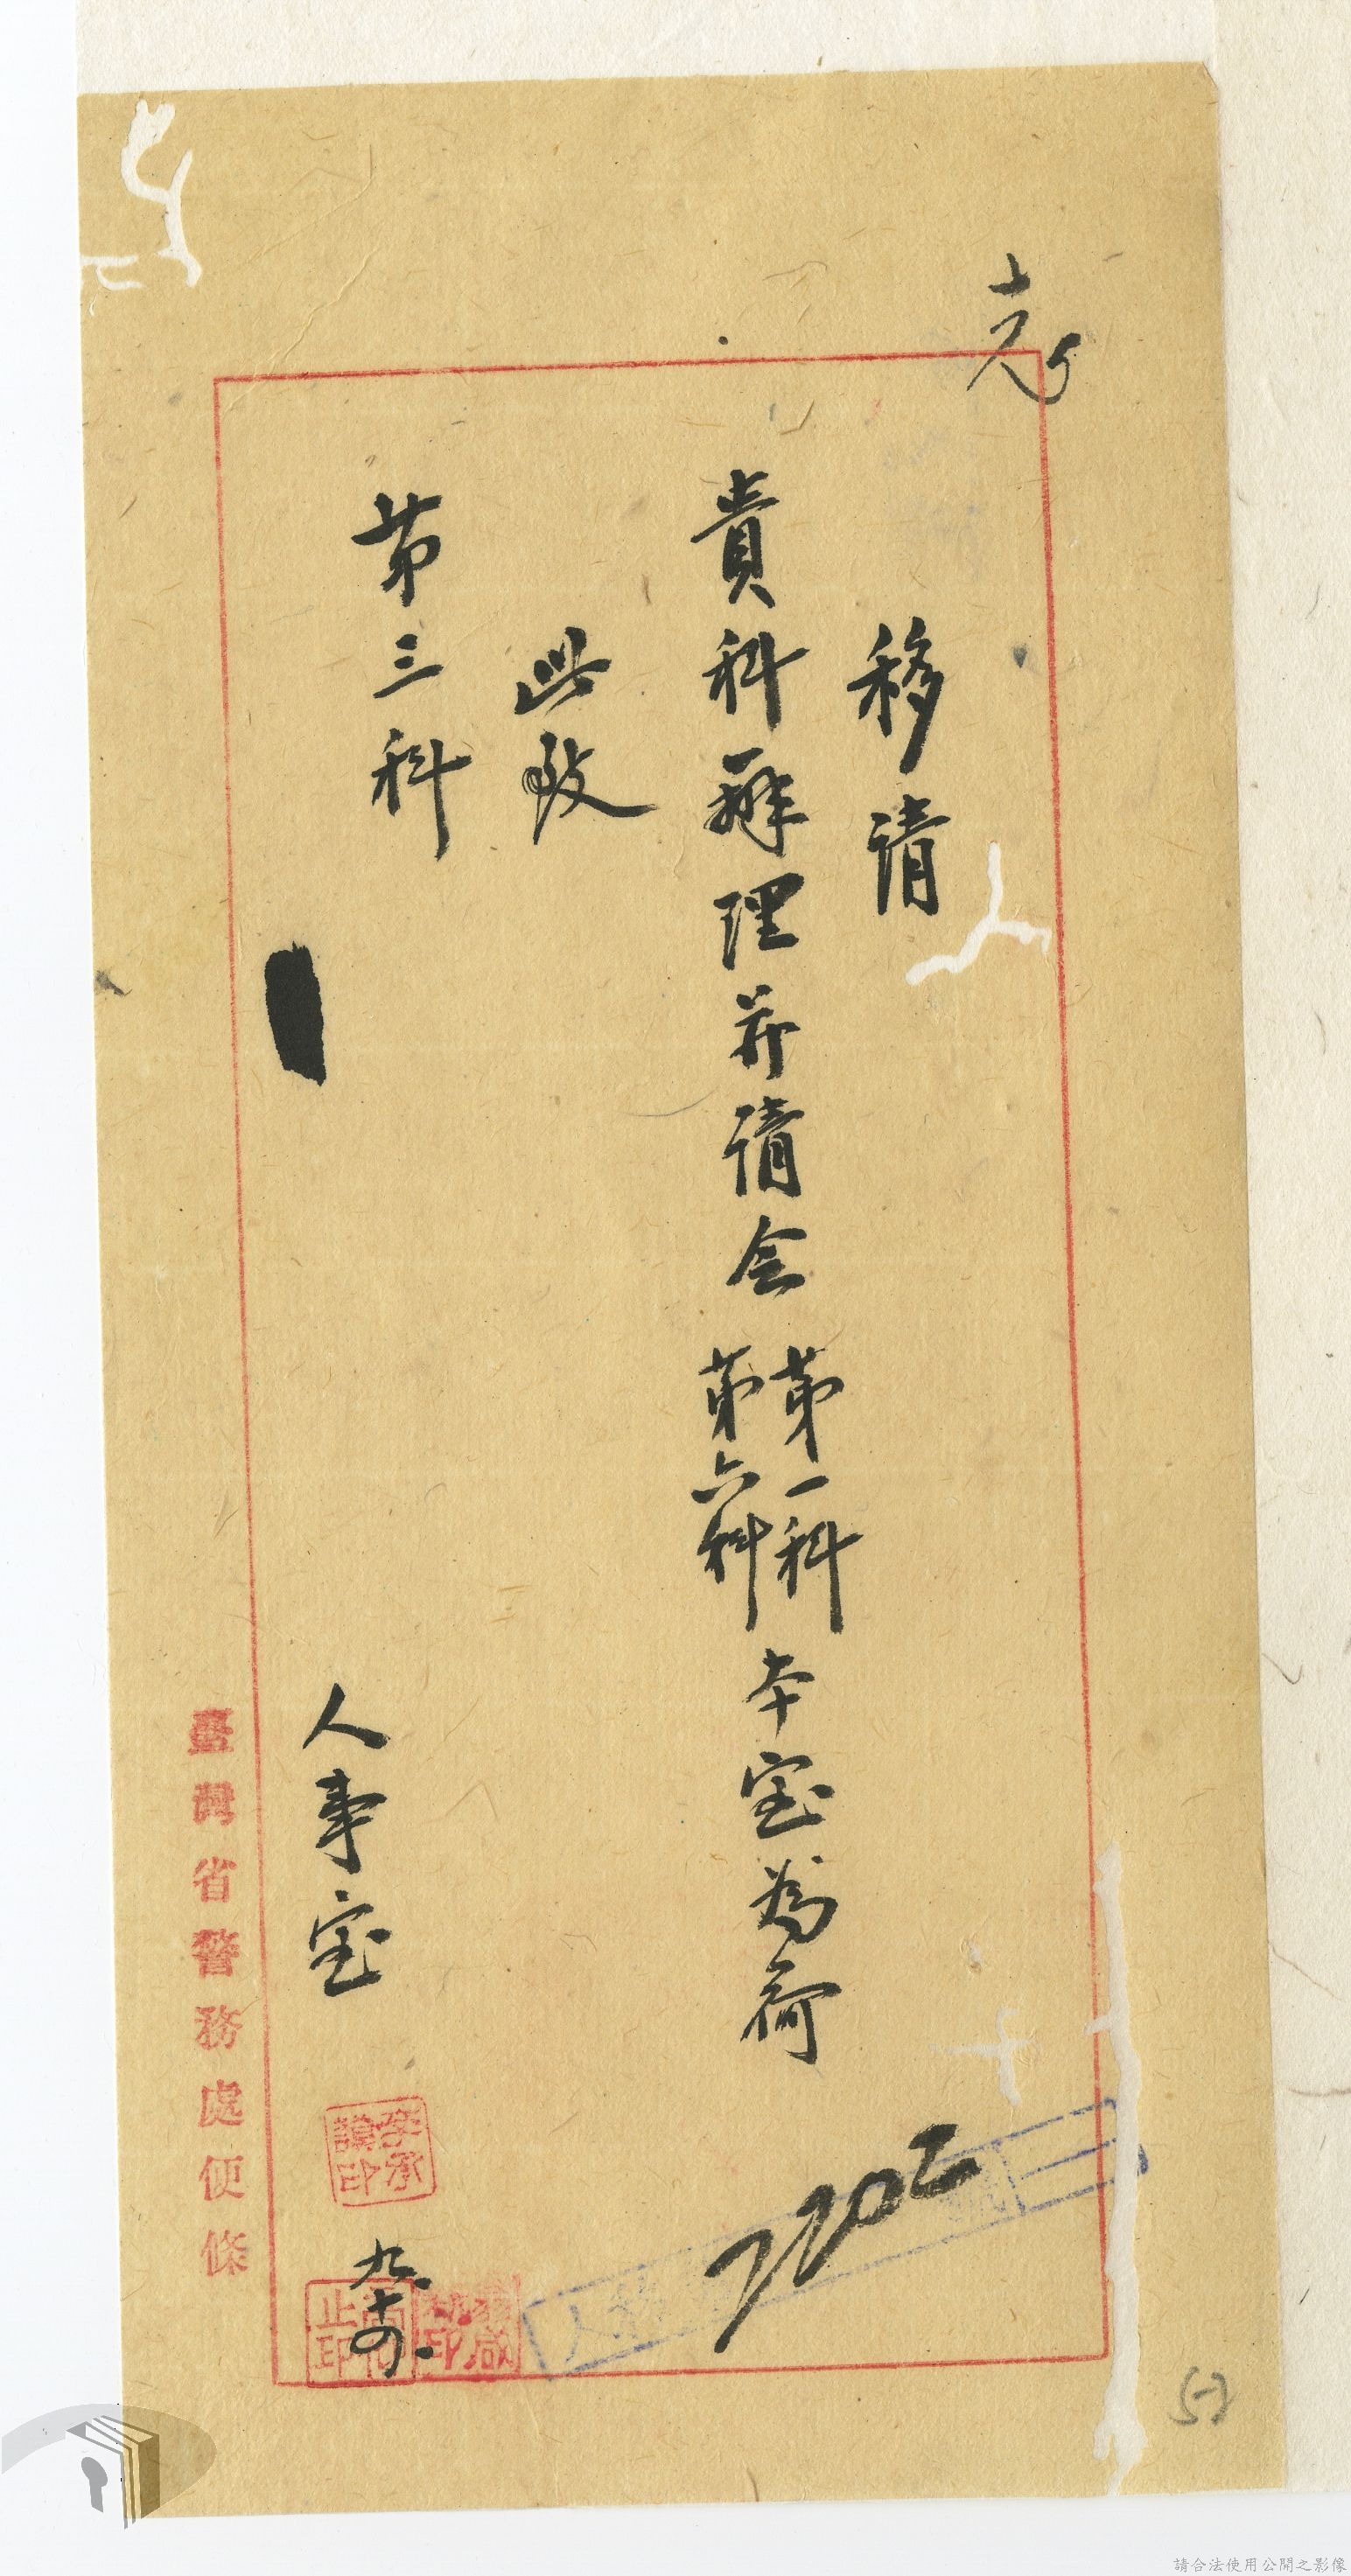 移请
貴科辦理并請会
第一科
第六科
本室為荷
此致
第三科
人事室
九.十四.
臺灣省警務處便條
李承謨印
請合法使用公開之影像